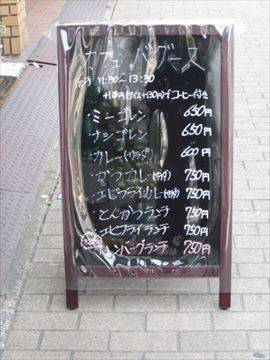 カフェ・バグース
ランチ 11:30〜13:30
コーヒー付き
・ミーゴレン 650円
・ナシゴレン 650円
・カレー(サラダ) 600円
・かつカレー(サラダ) 750円
・エビフライカレー(サラダ) 750円
・とんかつランチ 750円
・エビフライランチ 750円
ハンバーグランチ 750円